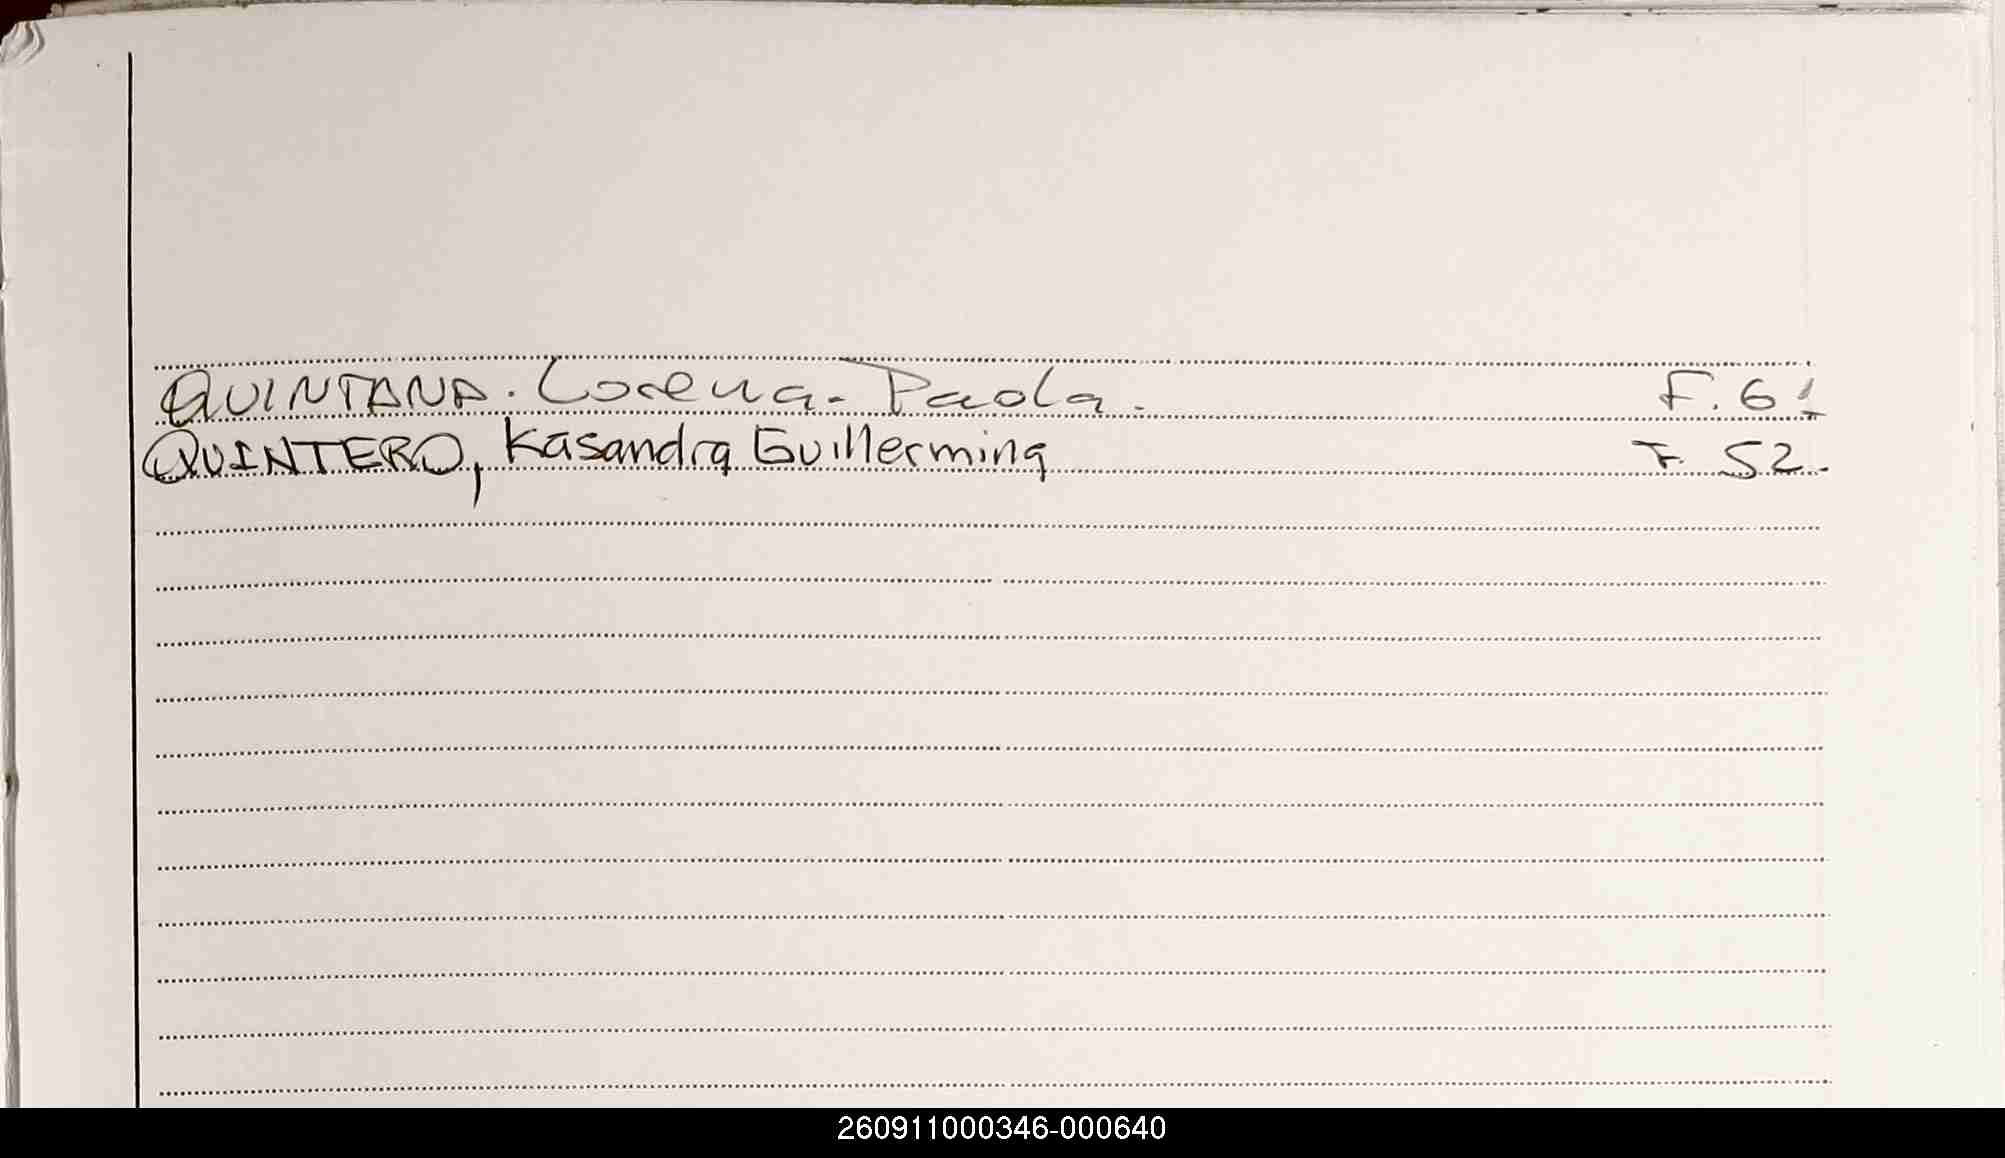 QUINTANA. Lorena-Paola. F. 61
QUINTERO, Kasandra Guillermina F. 52.
260911000346-000640